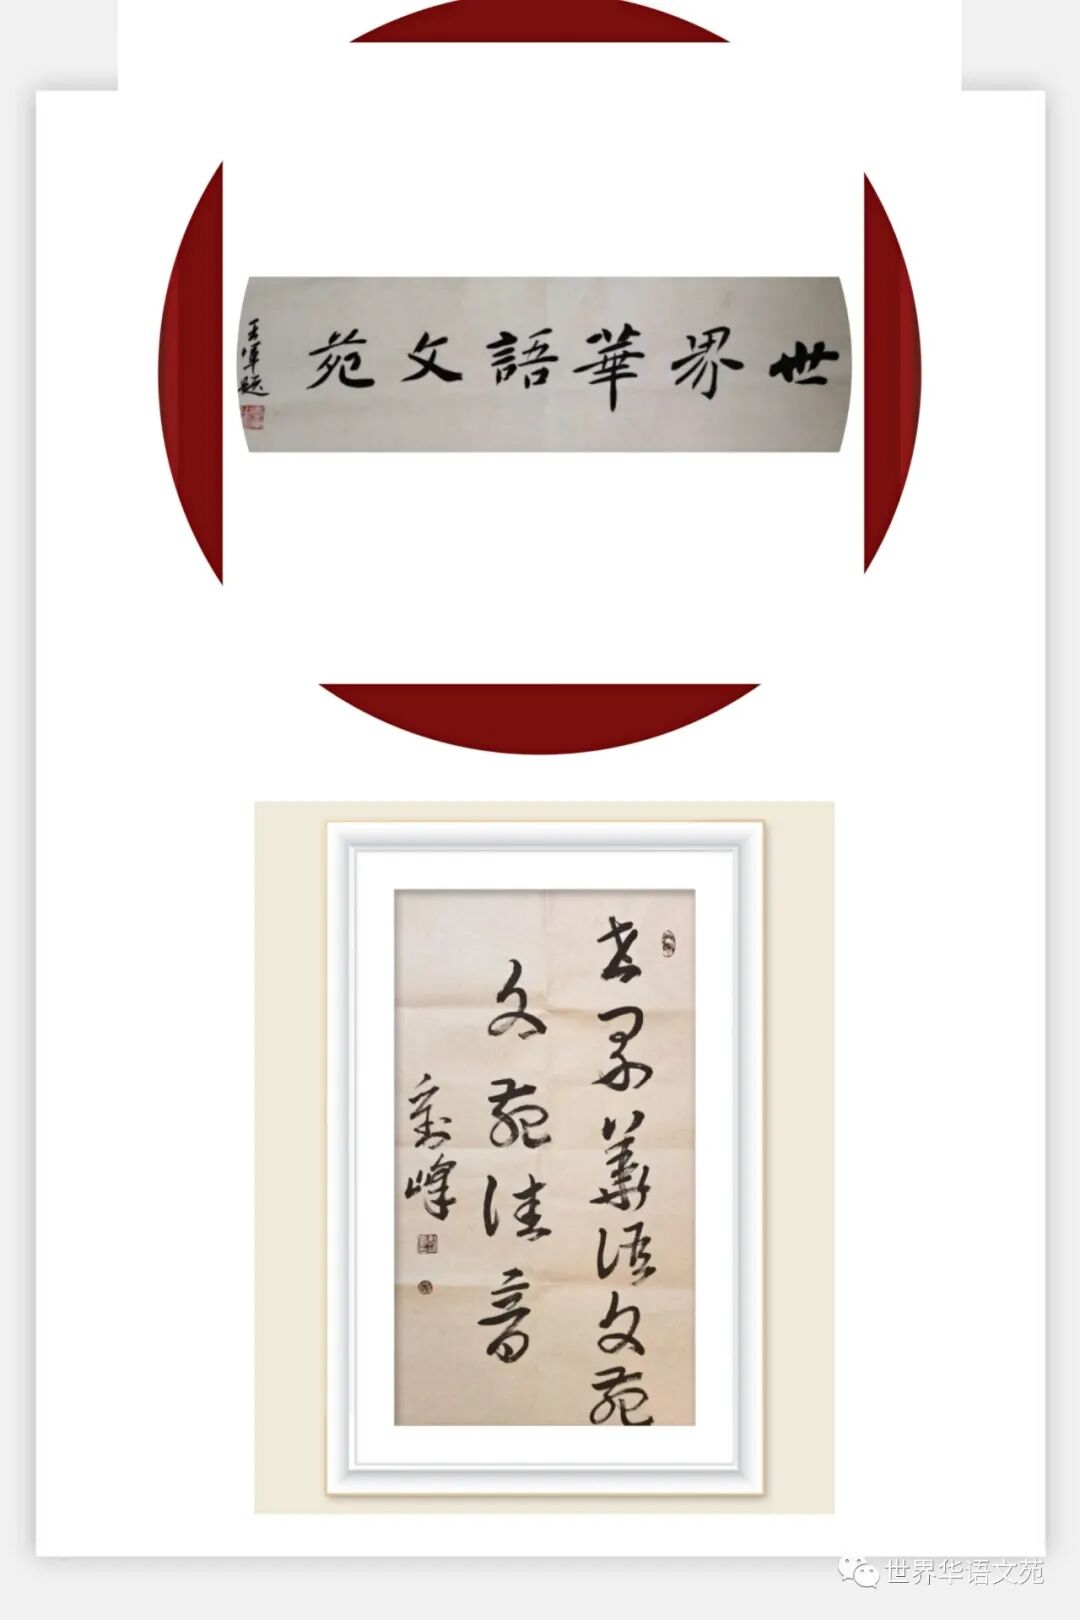 世界華語文苑
王軍題
世界華語文苑
文苑佳音
峰
世界华语文苑